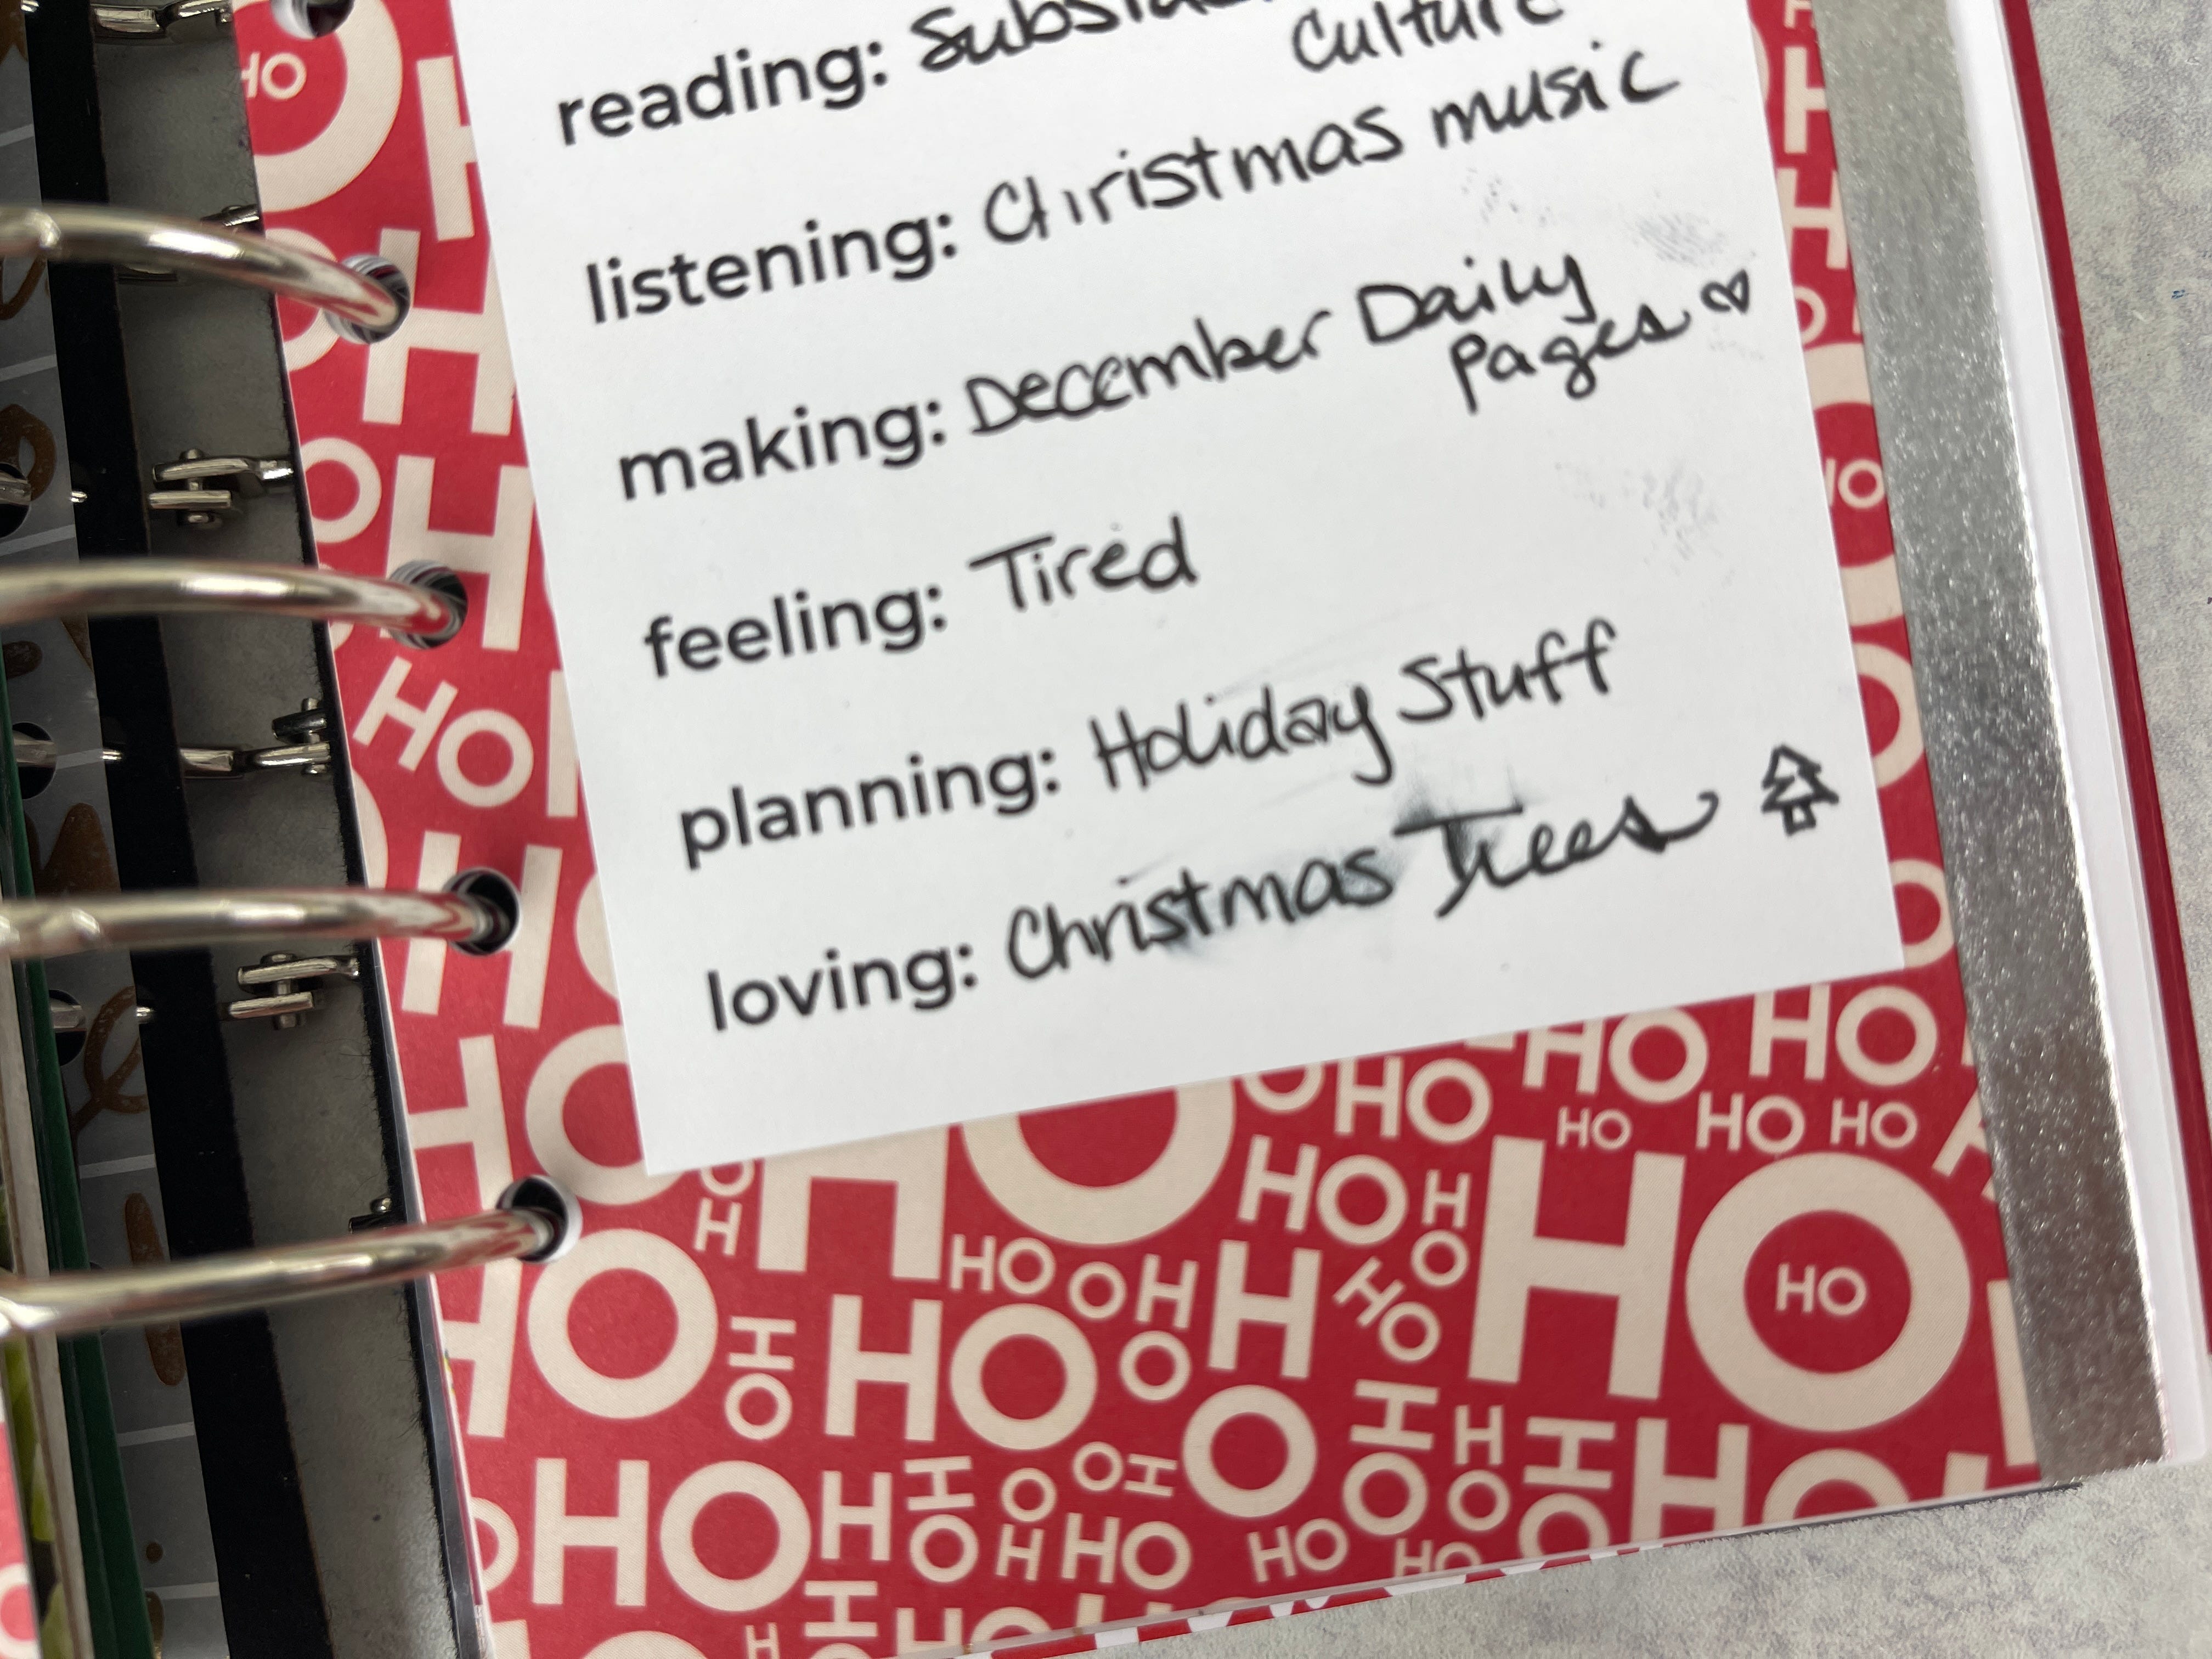 reading:
culture
listening: Christmas music
making: December Daily
pages
feeling: Tired
planning: Holiday Stuff
loving: Christmas Trees
HO
HO
HO
HO HO
HO HO
HO HO HO
HO HO
HO HO HO
HO HO
HO HO HO
HO HO HO
HO HO HO